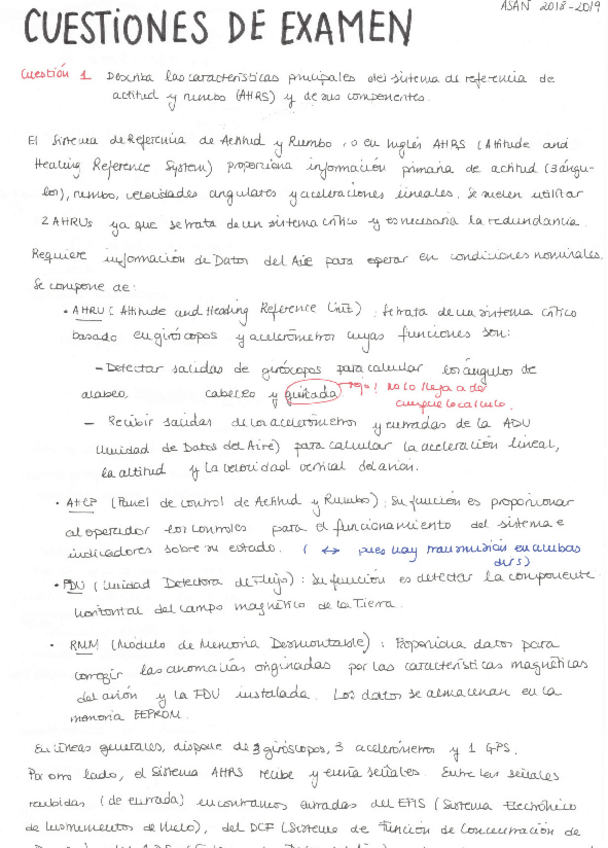 ASAN 2018-2019
CUESTIONES DE EXAMEN
Cuestión 1 Describa las características principales del sistema de referencia de
actitud y rumbo (AHRS) y de sus componentes.
El Sistema de Referencia de Actitud y Rumbo, o en Inglés AHRS (Attitude and
Heading Reference System) proporciona información primaria de actitud (3 ángu-
los), rumbo, velocidades angulares y aceleraciones lineales. Se suelen utilizar
2 AHRUs ya que se trata de un sistema crítico y es necesaria la redundancia.
Requiere información de Datos del Aire para operar en condiciones nominales.
Se compone de:
• AHRU (Attitude and Heading Reference Unit): Se trata de un sistema crítico
basado en giróscopos y acelerómetros cuyas funciones son:
- Detectar salidas de giróscopos para calcular los ángulos de
alabeo, cabeceo y guiñada → ojo! no lo llega a dar
aunque lo calcula.
- Recibir salidas de los acelerómetros y entradas de la ADU
(Unidad de Datos del Aire) para calcular la aceleración lineal,
la altitud y la velocidad vertical del avión.
• AHCP (Panel de control de Actitud y Rumbo): Su función es proporcionar
al operador los controles para el funcionamiento del sistema e
indicadores sobre su estado. ( ↔ pues hay transmisión en ambas
dir's)
• FDU (Unidad Detectora de Flujo): Su función es detectar la componente
horizontal del campo magnético de la Tierra.
• RMM (Módulo de Memoria Desmontable): Proporciona datos para
corregir las anomalías originadas por las características magnéticas
del avión y la FDU instalada. Los datos se almacenan en la
memoria EEPROM.
En líneas generales, dispone de 3 giróscopos, 3 acelerómetros y 1 GPS.
Por otro lado, el Sistema AHRS recibe y envía señales. Entre las señales
recibidas (de entrada) encontramos entradas del EFIS (Sistema Electrónico
de Instrumentos de Vuelo), del DCF (Sistema de Función de Concentración de